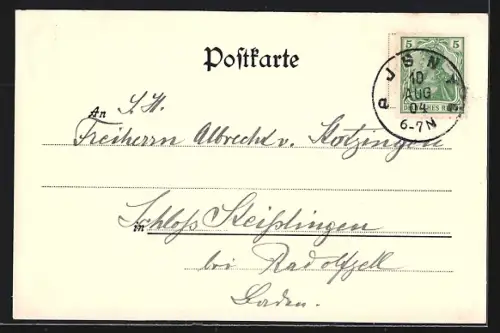 Postkarte
5 5
DEUTSCHES REICH
JSNY
10
AUG
04
6-7N
An S. H.
Freiherrn Albrecht v. Stotzingen
in Schloß Steißlingen
bei Radolfzell
Baden.